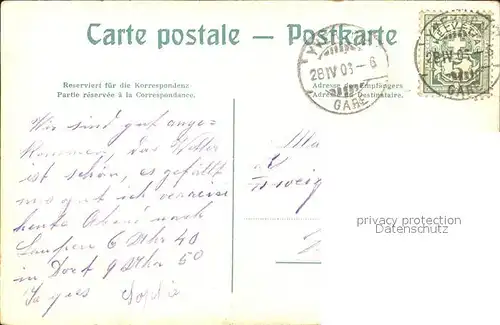 Carte postale – Postkarte
Reserviert für die Korrespondenz
Partie réservée à la Correspondance.
Adresse des Empfängers
Adresse du Destinataire.
28 IV 03 - 6
GARE
28 IV 03
GARE
Wir sind gut ange-
kommen, das Wetter
ist schön, es gefällt
uns gut ich verreise
heute Abend nach
Laupen 6 Uhr 40
in Dorf 9 Uhr 50
Sophie
privacy protection
Datenschutz